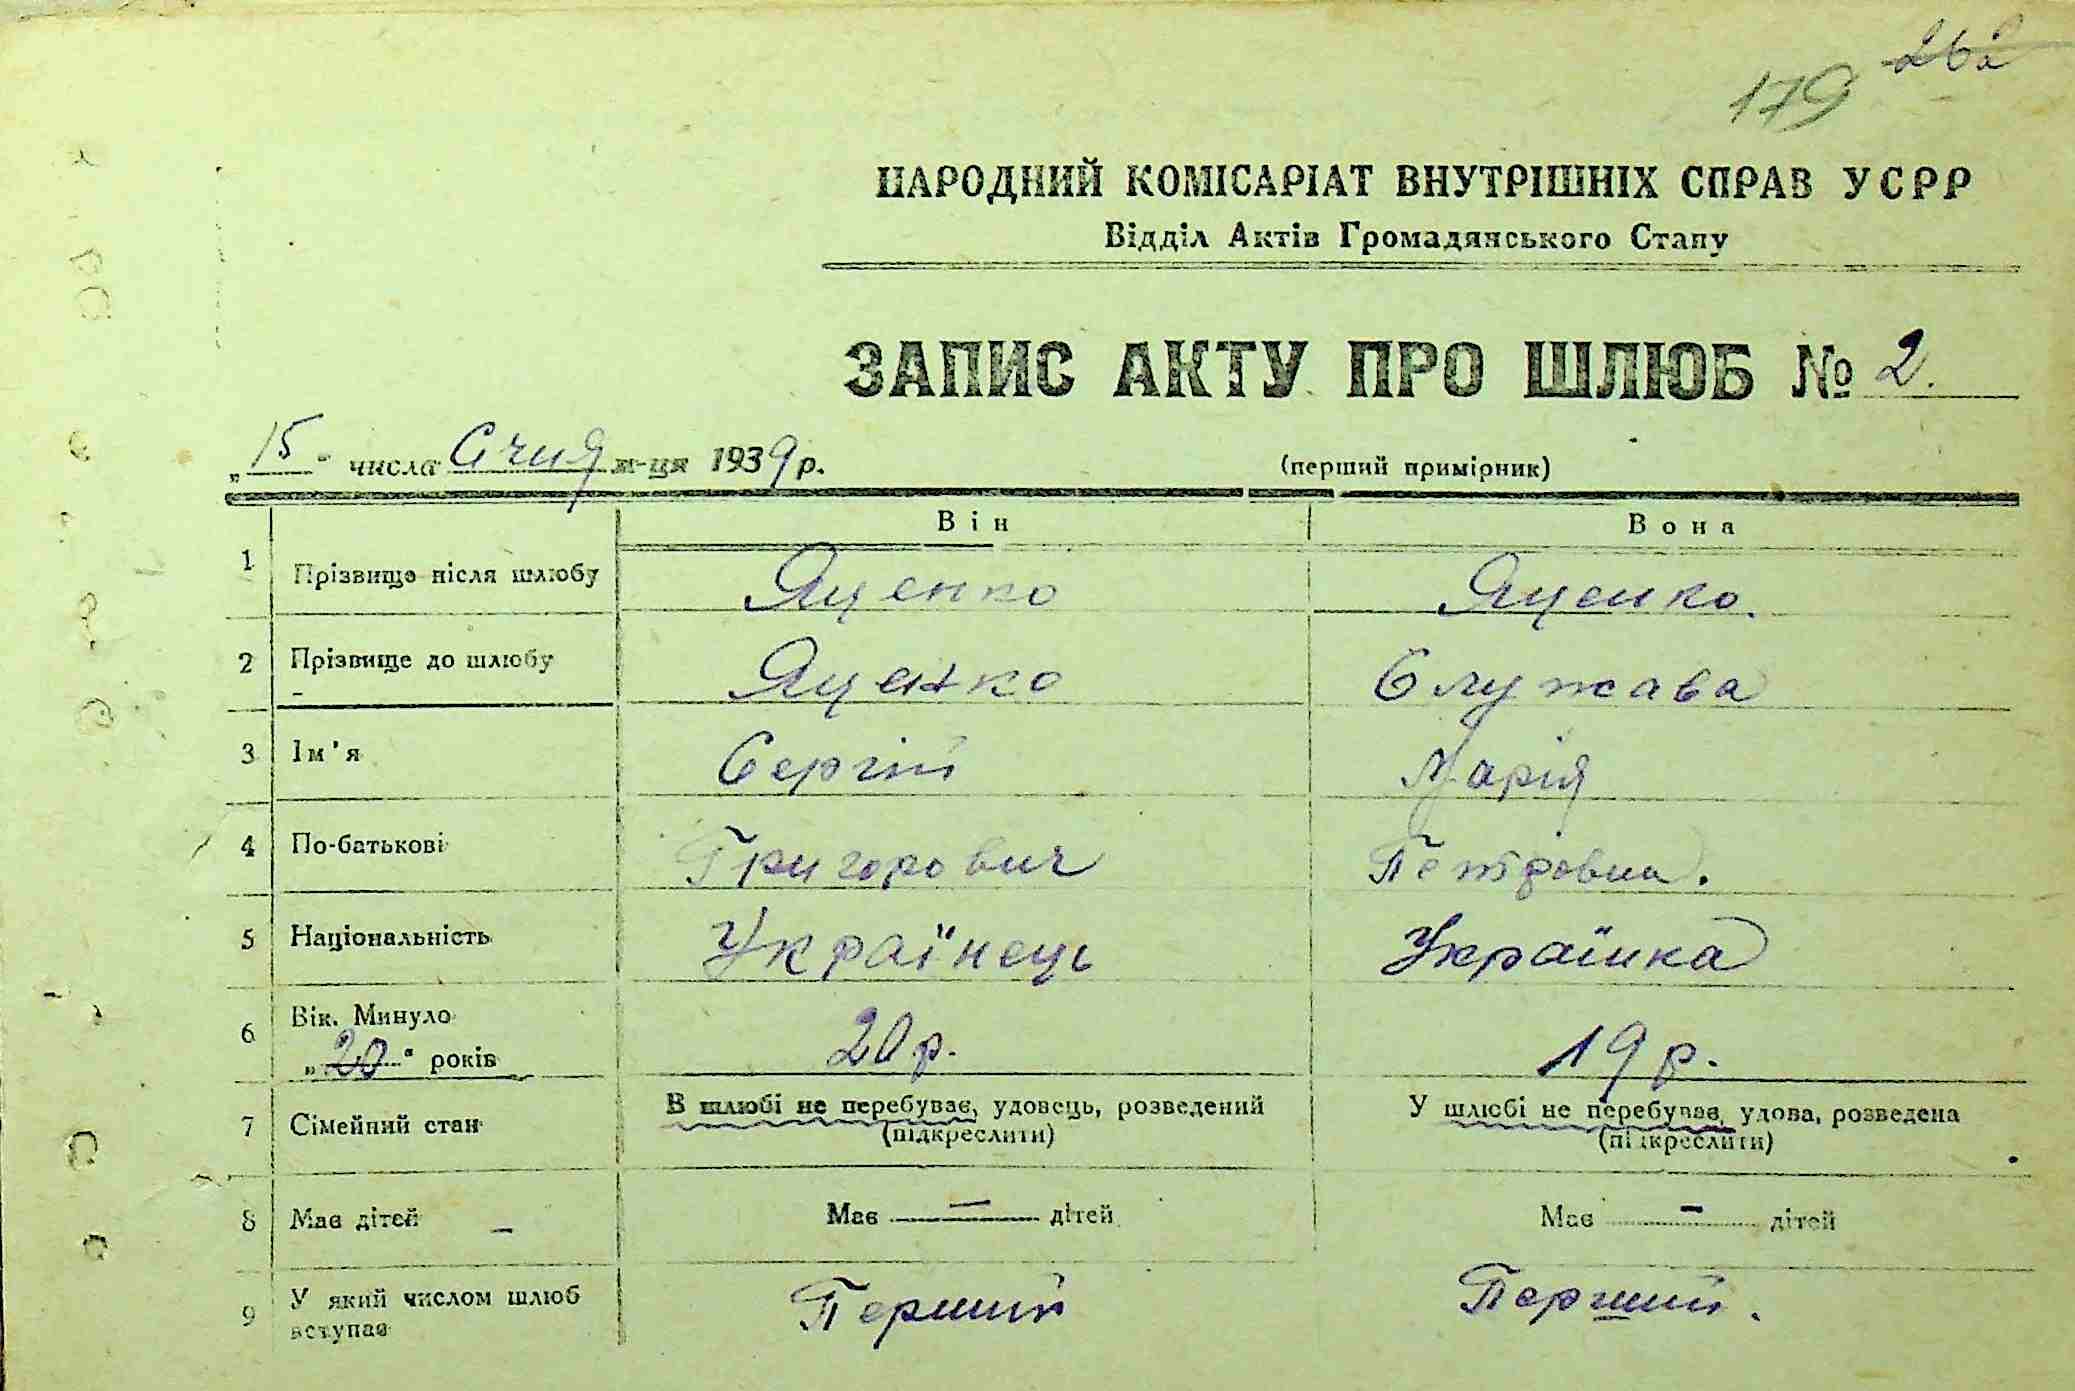 262
179
НАРОДНИЙ КОМІСАРІАТ ВНУТРІШНІХ СПРАВ УСРР
Відділ Актів Громадянського Стану
ЗАПИС АКТУ ПРО ШЛЮБ № 2.
„15" числа Січня м-ця 1939 р. (перший примірник)
Він Вона
1 Прізвище після шлюбу Яценко Яценко.
2 Прізвище до шлюбу Яценко Служава
3 Ім'я Сергій Марія
4 По-батькові Григорович Петровна.
5 Національність Українець Українка
6 Вік. Минуло „20" років 20 р. 19 р.
7 Сімейний стан В шлюбі не перебуває, удовець, розведений (підкреслити) У шлюбі не перебуває, удова, розведена (підкреслити)
8 Має дітей – Має — дітей Має – дітей
9 У який числом шлюб вступає Перший Перший.